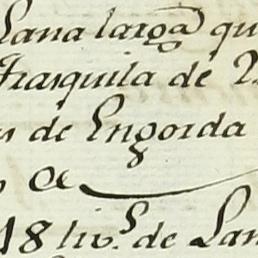 Lana larga qu
Frasquila de
s de Engorda
18 liv.s de Lan